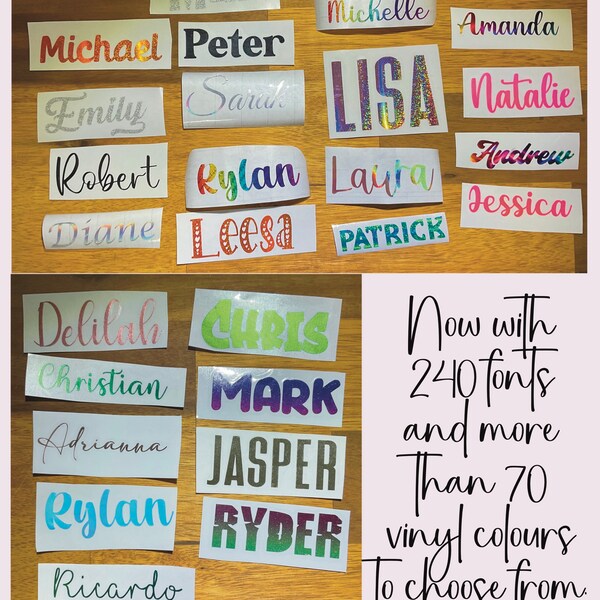 Michelle
Amanda
Michael
Peter
LISA
Natalie
Emily
Sarah
Andrew
Robert
Rylan
Laura
Jessica
Diane
Leesa
PATRICK
Delilah
CHRIS
Christian
MARK
Adrianna
JASPER
Rylan
RYDER
Ricardo
Now with
240 fonts
and more
than 70
vinyl colours
to choose from.